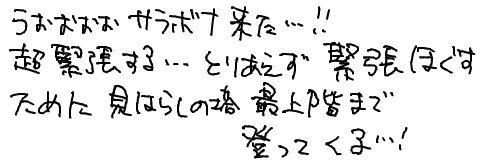 うおおおお サラボナ 来た…!!
超 緊張する… とりあえず 緊張 ほぐす
ために 見はらしの塔 最上階まで
登って くる…!